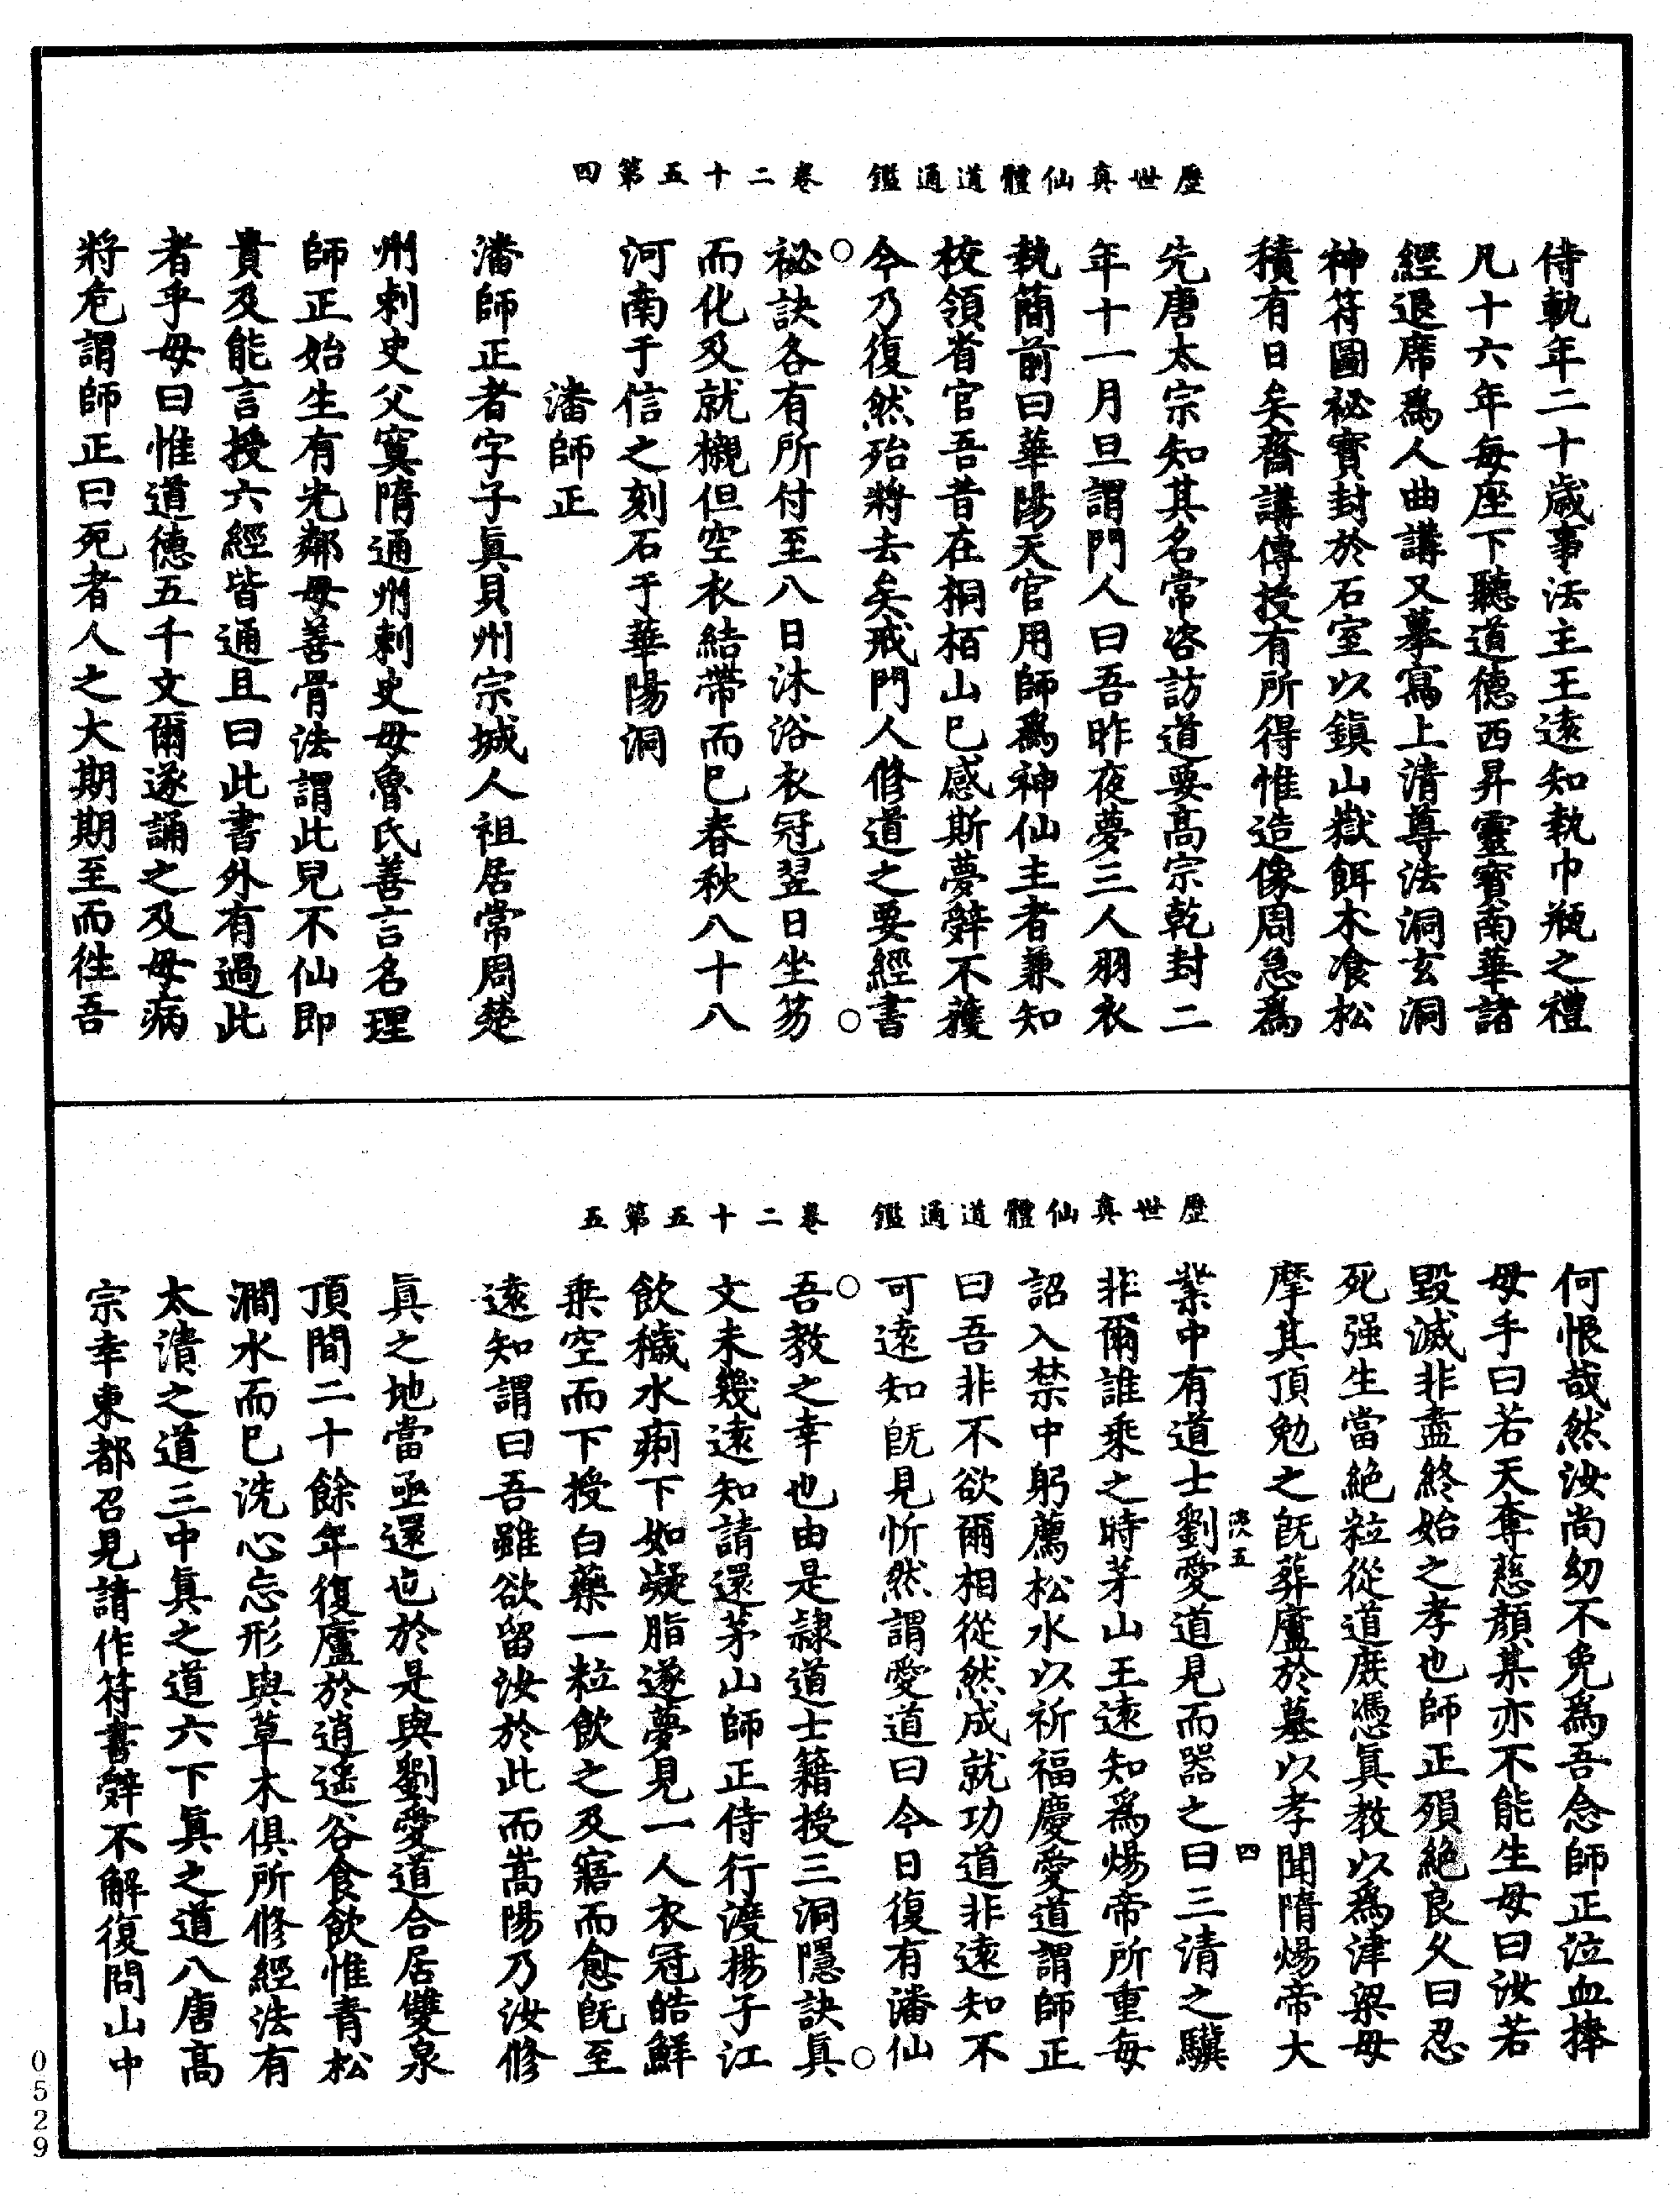 歷世真仙體道通鑑　卷二十五第四
侍軌年二十歲事法主王遠知執巾瓶之禮
凡十六年每座下聽道德西昇靈寶南華諸
經退席爲人曲講又摹寫上清尊法洞玄洞
神符圖祕寶封於石室以鎮山嶽餌朮飡松
積有日矣齋講傳授有所得惟造像周急爲
先唐太宗知其名常咨訪道要高宗乾封二
年十一月旦謂門人曰吾昨夜夢三人羽衣
執簡前曰華陽天官用師爲神仙主者兼知
校領省官吾昔在桐栢山已感斯夢辭不獲
今乃復然殆將去矣戒門人修道之要經書
○　○
祕訣各有所付至八日沐浴衣冠翌日坐笏
而化及就櫬但空衣結帶而已春秋八十八
河南于信之刻石于華陽洞
潘師正
潘師正者字子眞貝州宗城人祖居常周楚
州刺史父寞隋通州刺史母魯氏善言名理
師正始生有光鄰母善骨法謂此兒不仙即
貴及能言授六經皆通且曰此書外有過此
者乎母曰惟道德五千文爾遂誦之及母病
將危謂師正曰死者人之大期期至而徃吾
歷世真仙體道通鑑　卷二十五第五
何恨哉然汝尚幼不免爲吾念師正泣血捧
母手曰若天奪慈顏某亦不能生母曰汝若
毀滅非盡終始之孝也師正殞絕良久曰忍
死强生當絕粒從道庶憑眞教以爲津梁母
摩其頂勉之旣葬廬於墓以孝聞隋煬帝大
五　四
業中有道士劉愛道見而器之曰三清之驥
非爾誰乘之時茅山王遠知爲煬帝所重每
詔入禁中躬薦松水以祈福慶愛道謂師正
曰吾非不欲爾相從然成就功道非遠知不
可遠知旣見忻然謂愛道曰今日復有潘仙
○　○
吾教之幸也由是隷道士籍授三洞隱訣眞
文未幾遠知請還茅山師正侍行渡揚子江
飲穢水痢下如凝脂遂夢見一人衣冠皓鮮
乘空而下授白藥一粒飲之及寤而愈旣至
遠知謂曰吾雖欲留汝於此而嵩陽乃汝修
眞之地當亟還也於是與劉愛道合居雙泉
頂間二十餘年復廬於逍遙谷食飲惟青松
澗水而已洗心忘形與草木俱所修經法有
太清之道三中眞之道六下眞之道八唐高
宗幸東都召見請作符書辭不解復問山中
0529